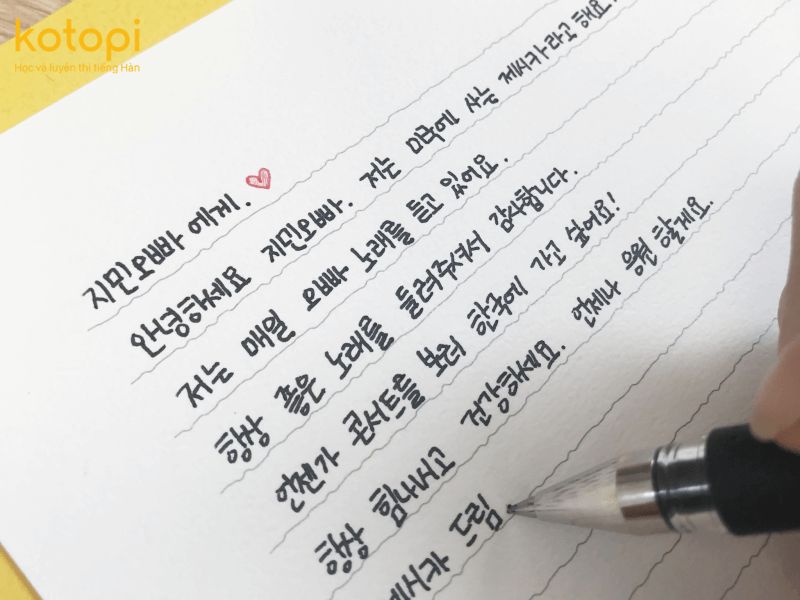 kotopi
Học và luyện thi tiếng Hàn
지민오빠 에게.
안녕하세요 지민오빠. 저는 미국에 사는 제시카라고 해요!
저는 매일 오빠 노래를 듣고 있어요.
항상 좋은 노래를 들려주셔서 감사합니다.
언젠가 콘서트를 보러 한국에 가고 싶어요!
항상 힘내시고 건강하세요. 언제나 응원 할게요.
제시카 드림